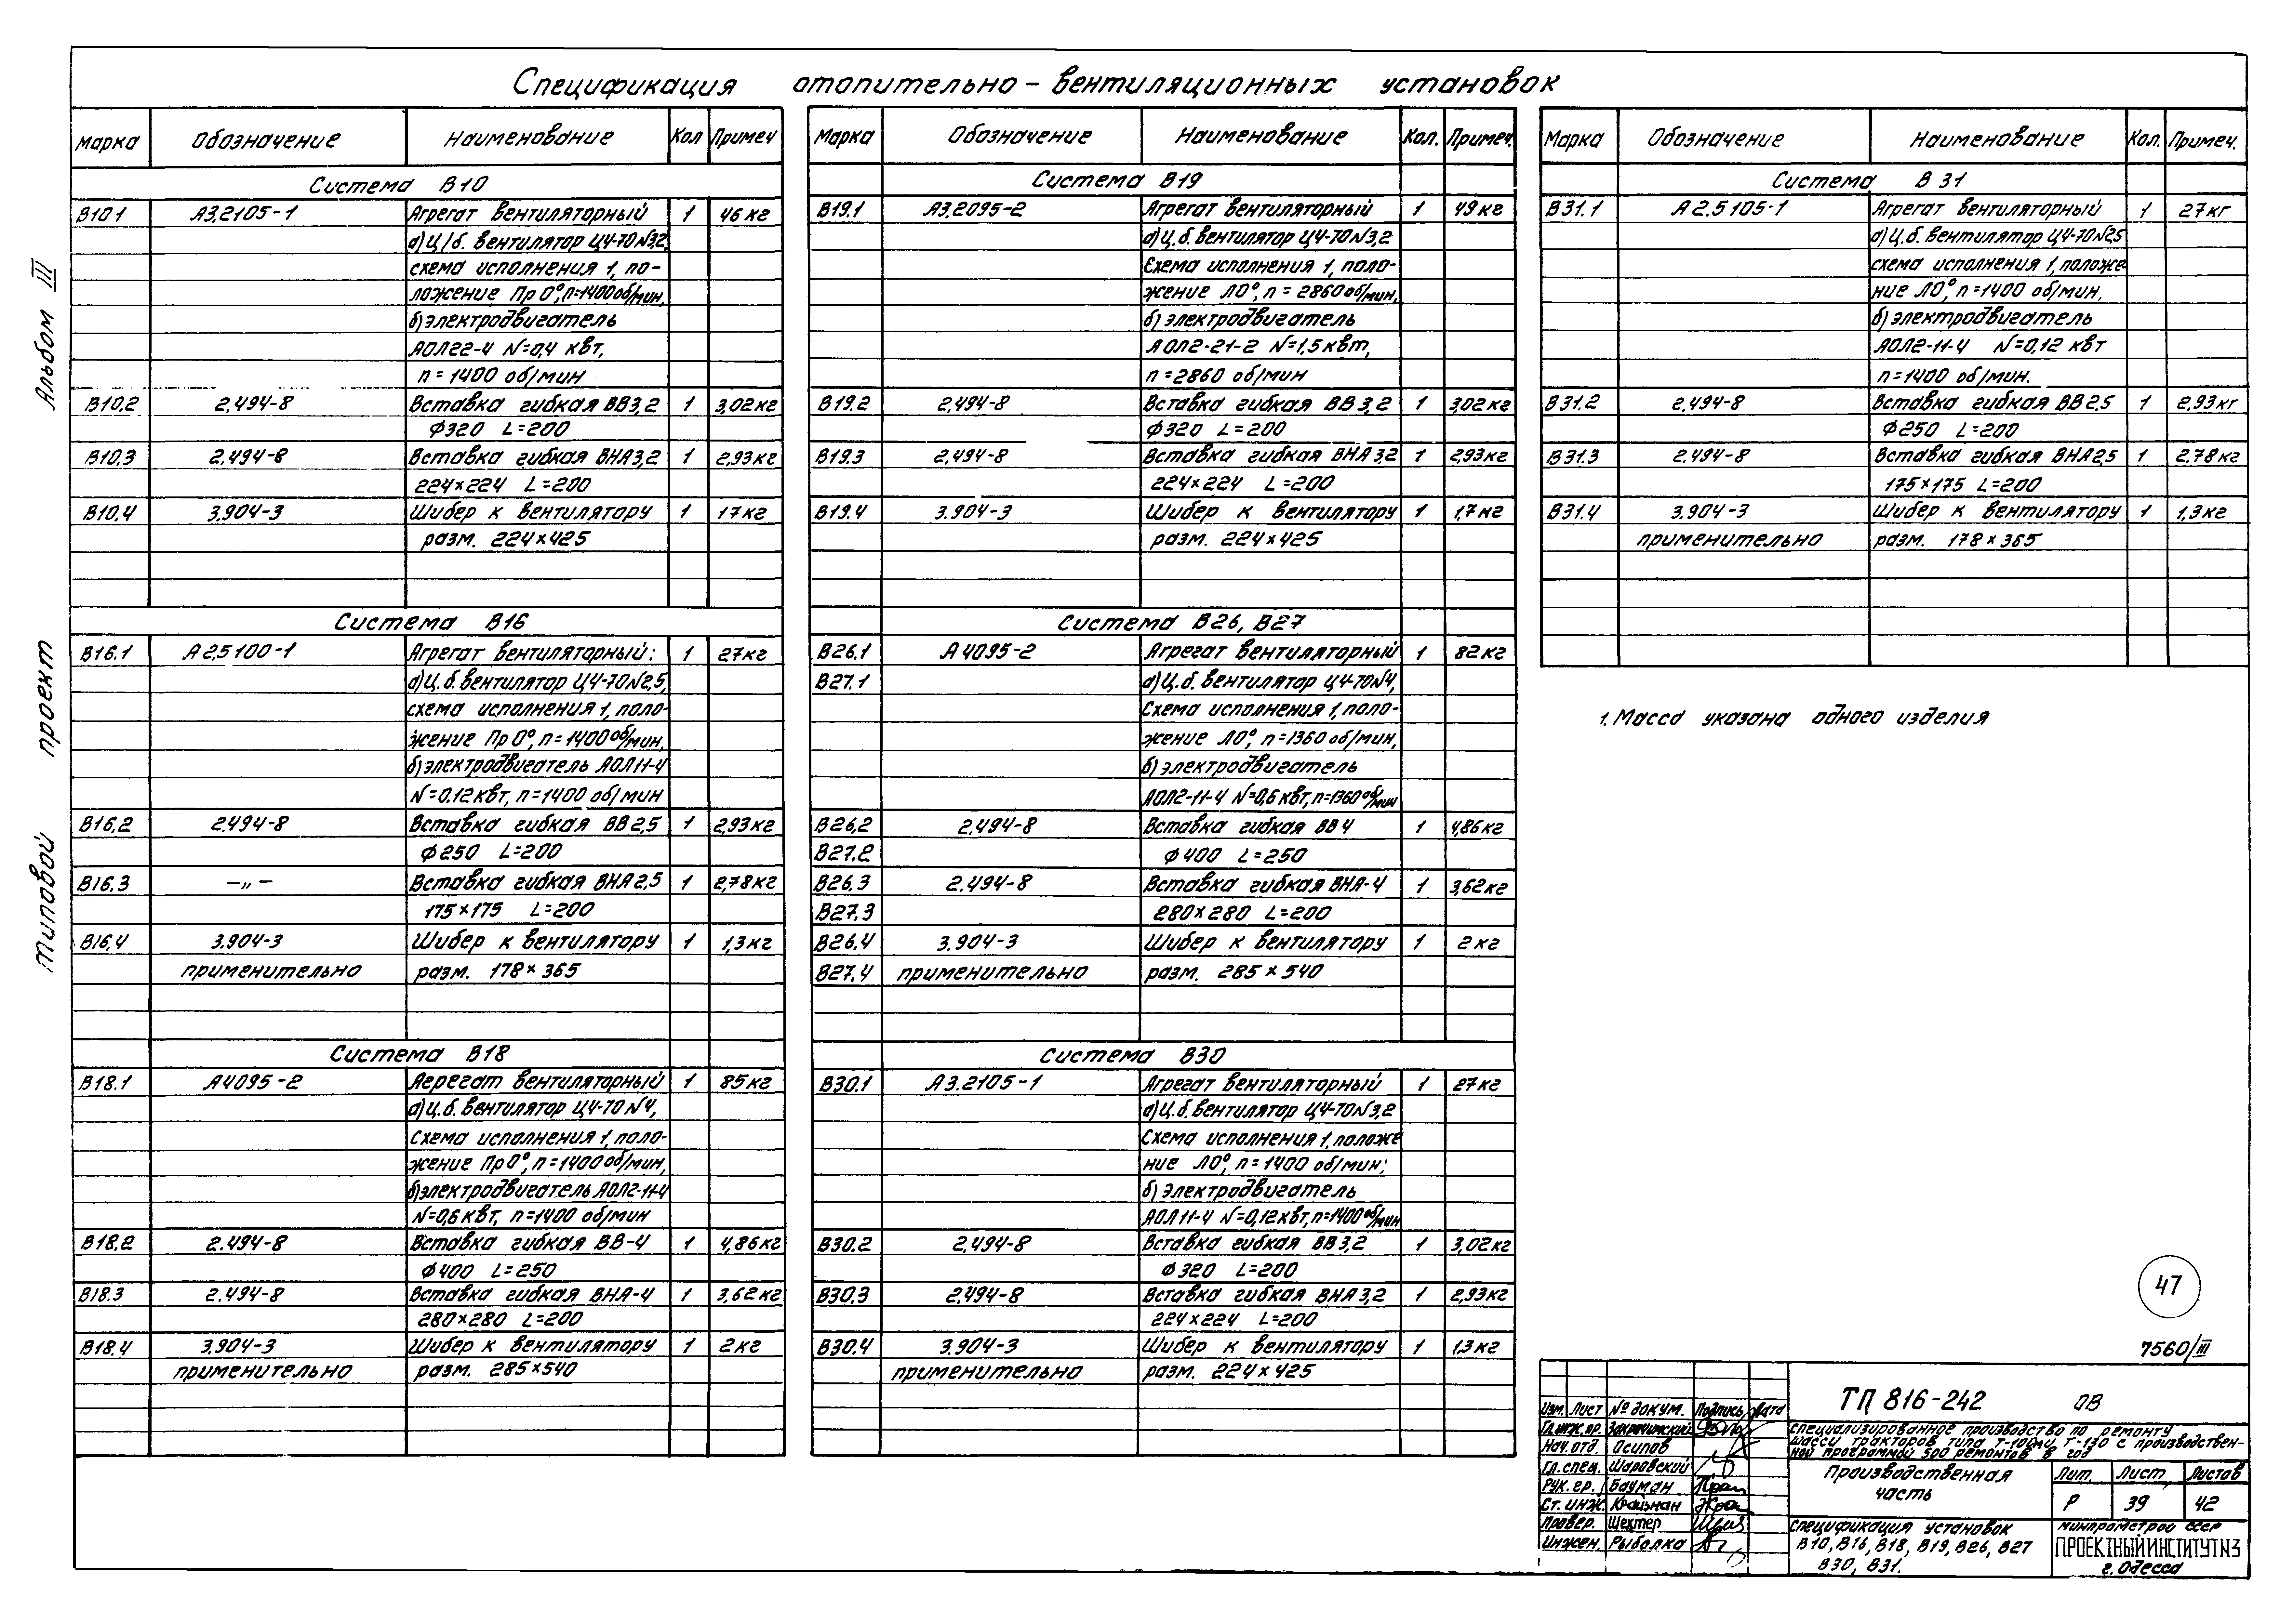 Спецификация отопительно-вентиляционных установок
Марка Обозначение Наименование Кол Примеч
Система В10
В10.1 А3,2105-1 Агрегат вентиляторный 1 46 кг
а) Ц/б. вентилятор Ц4-70 №3,2,
схема исполнения 1, по-
ложение Пр 0°, n=1400 об/мин,
б) электродвигатель
АОЛ22-4 N=0,4 квт,
n=1400 об/мин
В10,2 2,494-8 Вставка гибкая ВВ3,2 1 3,02 кг
Ф320 L=200
В10,3 2,494-8 Вставка гибкая ВНА3,2 1 2,93 кг
224×224 L=200
В10,4 3.904-3 Шибер к вентилятору 1 1,7 кг
разм. 224×425
Система В16
В16.1 А2,5100-1 Агрегат вентиляторный: 1 27 кг
а) Ц.б. вентилятор Ц4-70 №2,5,
схема исполнения 1, поло-
жение Пр 0°, n=1400 об/мин,
б) электродвигатель АОЛ11-4
N=0,12 квт, n=1400 об/мин
В16,2 2.494-8 Вставка гибкая ВВ2,5 1 2,93 кг
Ф250 L=200
В16.3 —„— Вставка гибкая ВНА2,5 1 2,78 кг
175×175 L=200
В16,4 3.904-3 Шибер к вентилятору 1 1,3 кг
применительно разм. 178×365
Система В18
В18.1 А4095-2 Агрегат вентиляторный 1 85 кг
а) Ц.б. вентилятор Ц4-70 №4,
Схема исполнения 1, поло-
жение Пр 0°, n=1400 об/мин,
б) электродвигатель АОЛ2-11-4
N=0,6 квт, n=1400 об/мин
В18,2 2.494-8 Вставка гибкая ВВ-4 1 4,86 кг
Ф400 L=250
В18.3 2.494-8 Вставка гибкая ВНА-4 1 3,62 кг
280×280 L=200
В18,4 3.904-3 Шибер к вентилятору 1 2 кг
применительно разм. 285×540
Марка Обозначение Наименование Кол. Примеч.
Система В19
В19.1 А3,2095-2 Агрегат вентиляторный 1 49 кг
а) Ц.б. вентилятор Ц4-70 №3,2
Схема исполнения 1, поло-
жение Л0°, n=2860 об/мин,
б) электродвигатель
АОЛ2-21-2 N=1,5 квт,
n=2860 об/мин
В19.2 2,494-8 Вставка гибкая ВВ3,2 1 3,02 кг
Ф320 L=200
В19.3 2,494-8 Вставка гибкая ВНА3,2 1 2,93 кг
224×224 L=200
В19.4 3.904-3 Шибер к вентилятору 1 1,7 кг
разм. 224×425
Система В26, В27
В26.1 А4095-2 Агрегат вентиляторный 1 82 кг
В27.1 а) Ц.б. вентилятор Ц4-70 №4,
Схема исполнения 1, поло-
жение Л0°, n=1360 об/мин,
б) электродвигатель
АОЛ2-11-4 N=0,6 квт, n=1360 об/мин
В26,2 2,494-8 Вставка гибкая ВВ4 1 4,86 кг
В27.2 Ф400 L=250
В26,3 2,494-8 Вставка гибкая ВНА-4 1 3,62 кг
В27,3 280×280 L=200
В26,4 3.904-3 Шибер к вентилятору 1 2 кг
В27,4 применительно разм. 285×540
Система В30
В30.1 А3.2105-1 Агрегат вентиляторный 1 27 кг
а) Ц.б. вентилятор Ц4-70 №3,2
Схема исполнения 1, положе
ние Л0°, n=1400 об/мин;
б) Электродвигатель
АОЛ11-4 N=0,12 квт, n=1400 об/мин
В30.2 2,494-8 Вставка гибкая ВВ3,2 1 3,02 кг
Ф320 L=200
В30.3 2,494-8 Вставка гибкая ВНА3,2 1 2,93 кг
224×224 L=200
В30,4 3.904-3 Шибер к вентилятору 1 1,3 кг
применительно разм. 224×425
Марка Обозначение Наименование Кол. Примеч.
Система В31
В31.1 А2.5105-1 Агрегат вентиляторный 1 27 кг
а) Ц.б. вентилятор Ц4-70 №2,5
схема исполнения 1, положе-
ние Л0°, n=1400 об/мин,
б) электродвигатель
АОЛ2-11-4 N=0,12 квт
n=1400 об/мин.
В31.2 2,494-8 Вставка гибкая ВВ2,5 1 2,93 кг
Ф250 L=200
В31.3 2.494-8 Вставка гибкая ВНА2,5 1 2.78 кг
175×175 L=200
В31.4 3.904-3 Шибер к вентилятору 1 1,3 кг
применительно разм. 178×365
1. Масса указана одного изделия
Альбом III
типовой проект
47
7560/III
ТП 816-242 ОВ
Изм. Лист № докум. Подпись Дата
Гл.инж.пр.
Нач. отд. Осипов
Гл. спец. Шаровский
Рук. гр. Бауман
Ст. инж. Крайзман
Провер. Шехтер
Инжен. Рыболка
Специализированное производство по ремонту
шасси тракторов типа Т-100М, Т-130 с производствен-
ной программой 500 ремонтов в год
Производственная
часть
Лит. Лист Листов
Р 39 42
Спецификация установок
В10, В16, В18, В19, В26, В27
В30, В31.
Минпромстрой СССР
ПРОЕКТНЫЙ ИНСТИТУТ №3
г. Одесса